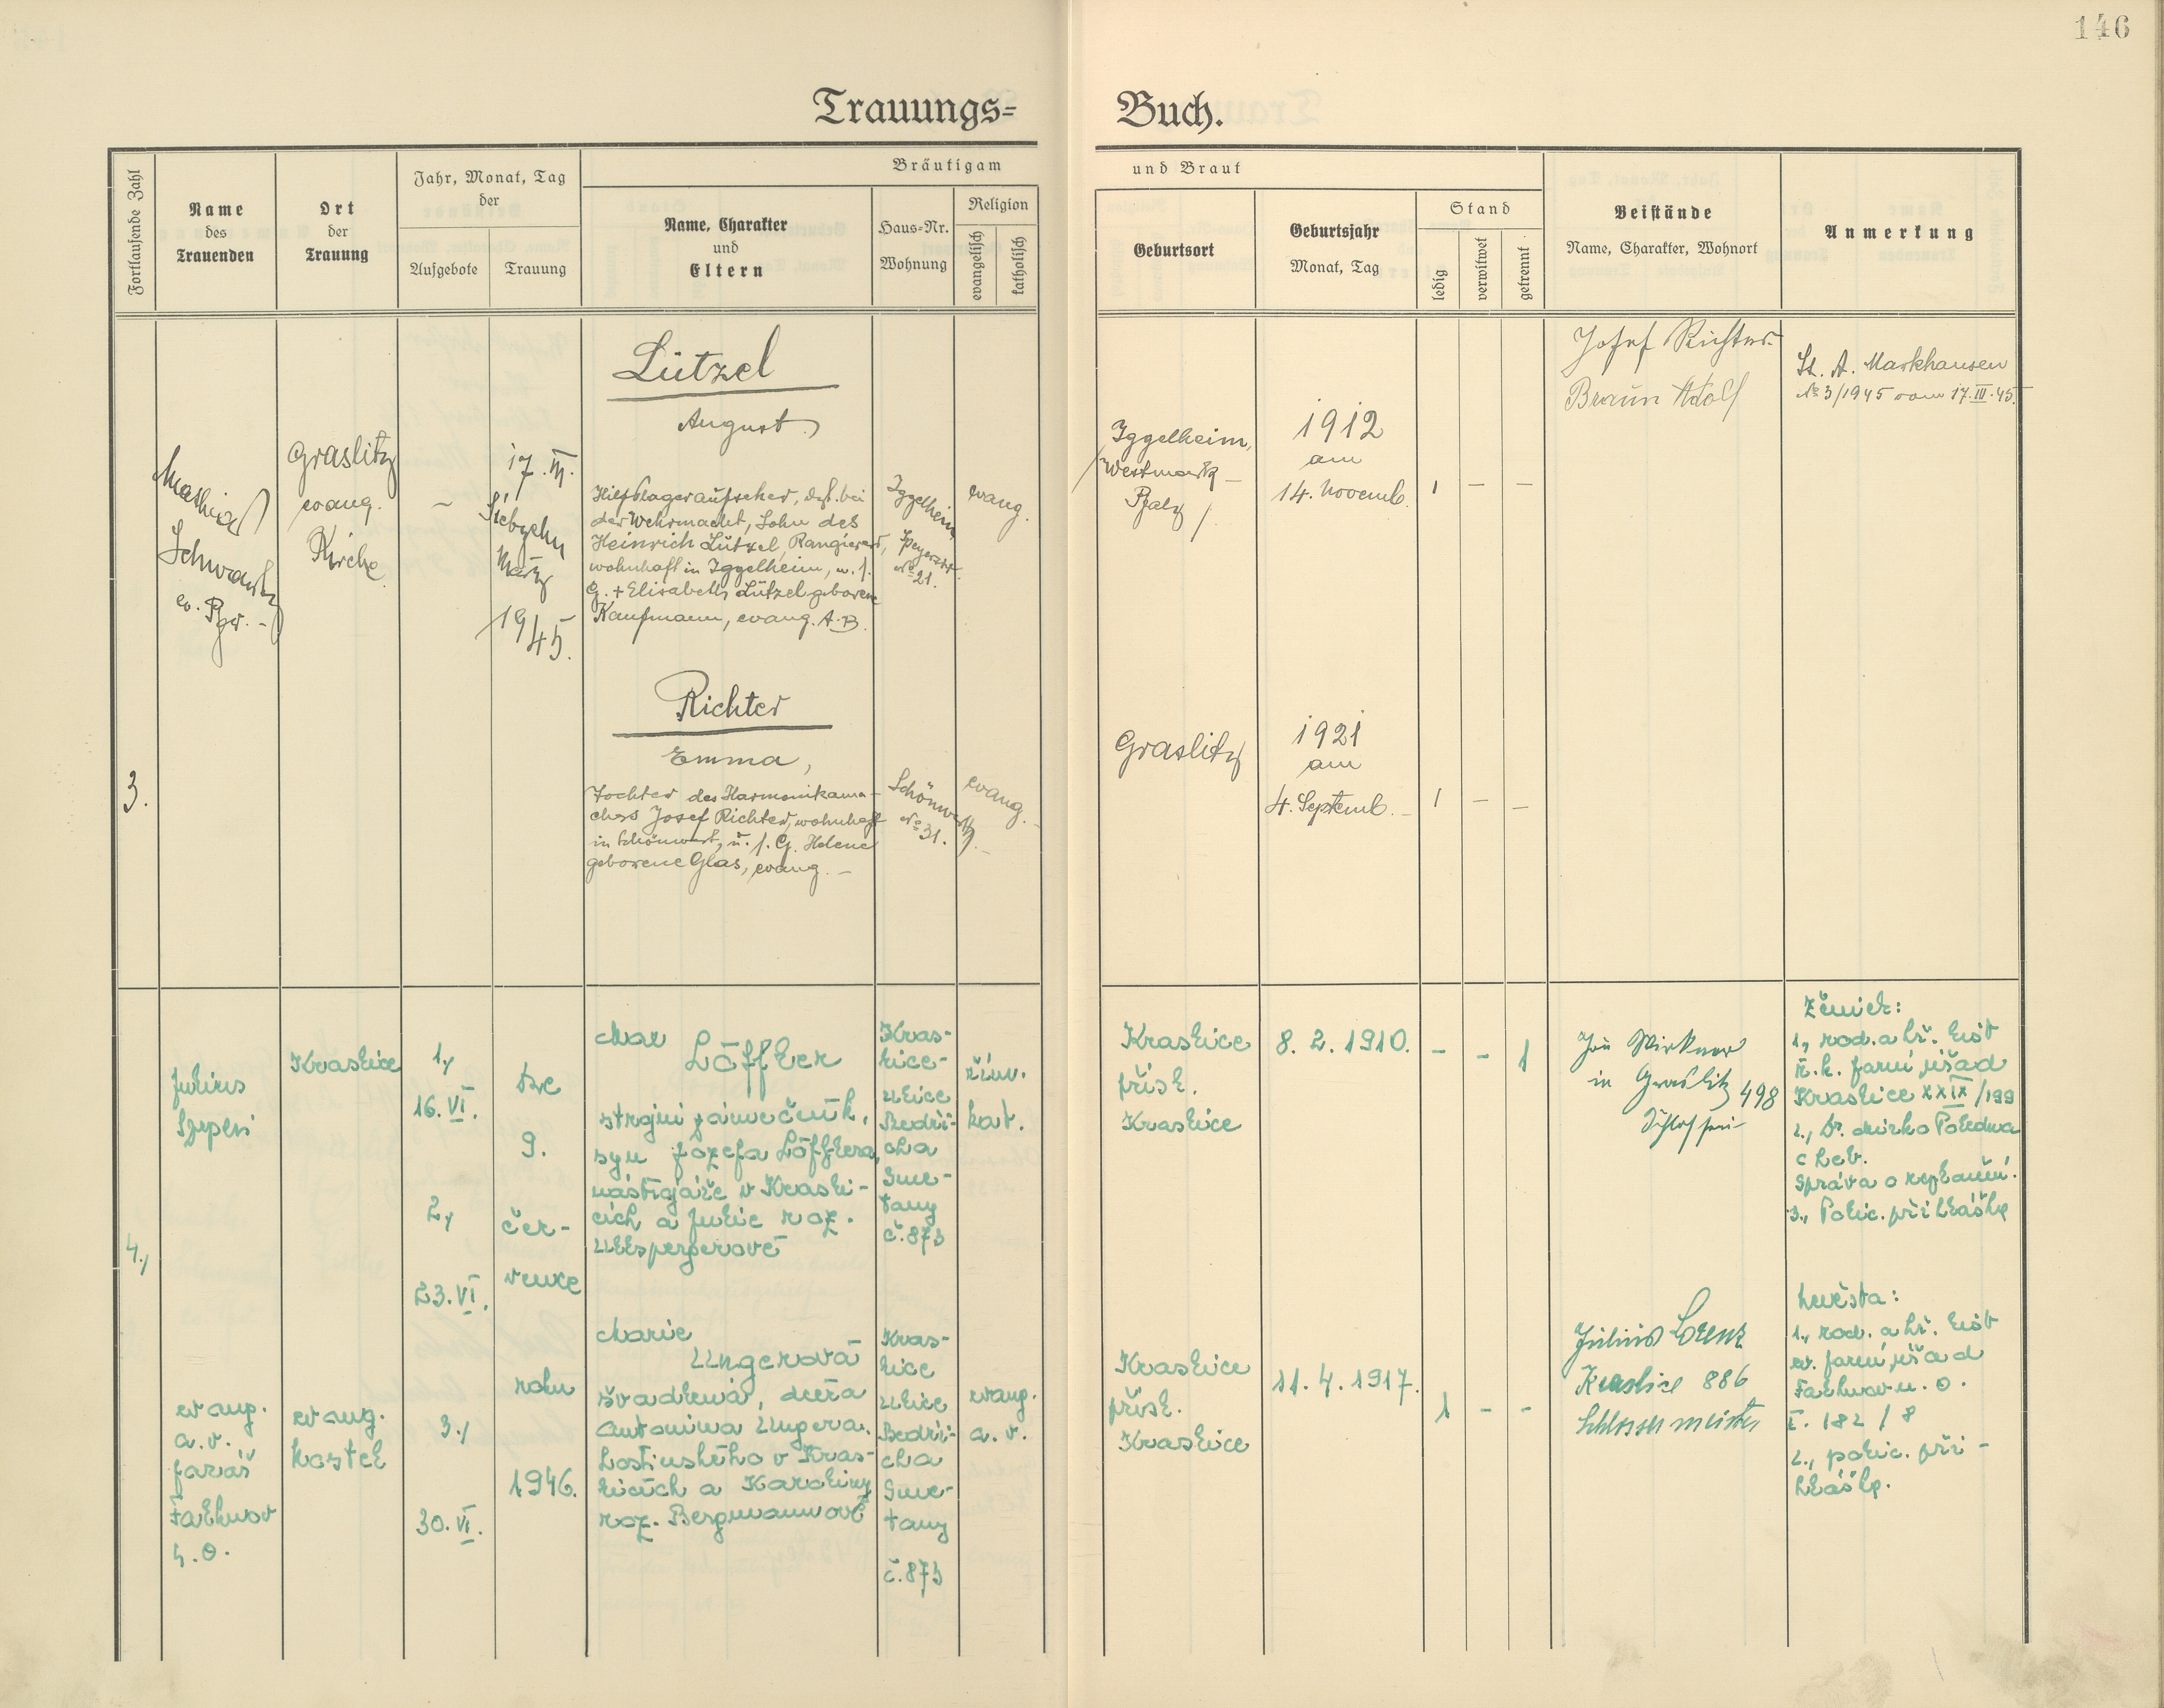 146
Trauungs=
Buch.
Fortlaufende Zahl
Name
des
Trauenden
Ort
der
Trauung
Jahr, Monat, Tag
der
Aufgebote
Trauung
Bräutigam
Name, Charakter
und
Eltern
Haus=Nr.
Wohnung
Religion
evangelisch
katholisch
und Braut
Geburtsort
Geburtsjahr
Monat, Tag
Stand
ledig
verwitwet
getrennt
Beistände
Name, Charakter, Wohnort
Anmerkung
3.
Mathias
Schwarz
ev. Pfr. -
Graslitz
evang.
Kirche
-
17. III.
Siebzehn
März
1945.
Lützel
August
Hilfslageraufseher, dzt. bei
der Wehrmacht, Sohn des
Heinrich Lützel, Rangierers,
wohnhaft in Iggelheim, u. s.
G. + Elisabeth Lützel geborene
Kaufmann, evang. A.B.
Iggelheim,
Speyerstr.
No 21.
evang.
Iggelheim,
/Westmark -
Pfalz /
1912
am
14. Novemb.
1 - -
Josef Richter
Braun Adolf
St. A. Markhausen
No 3/1945 vom 17.III.45.
Richter
Emma,
Tochter des Harmonikama-
chers Josef Richter, wohnhaft
in Schönwert, u. s. G. Helene
geborene Glas, evang. -
Schönwerth
No 31.
evang. -
Graslitz
1921
am
4. Septemb. -
1 - -
4.,
Julius
Szepesi
ev ang.
a. v.
farář
Falknov
n. O.
Kraslice
ev ang.
kostel
1.,
16. VI.
2.,
23. VI.
3.,
30. VI.
dne
9.
čer-
vence
roku
1946.
Max
Löffler
strojní zámečník,
syn Jozefa Löfflera,
nástrojáře v Krasli-
cích a Julie roz.
Ullspergerové
Kras-
lice-
ulice
Bedři-
cha
Sme-
tany
č. 873
řím.
kat.
Kraslice
přísl.
Kraslice
8. 2. 1910.
- - 1
in Graslitz 498
Ženich:
1., rod. a kř. list
ř. k. farní úřad
Kraslice XXIX/199
2., Dr. Mirko Poledna
Cheb.
Správa o rozloučení.
3., Polic. přihlášky
Marie
Ungerová
švadlena, dcera
Antonína Ungera,
hostinského v Kras-
licích a Karoliny
roz. Bergmannové
Kras-
lice
ulice
Bedři-
cha
Sme-
tany
č. 873
evang.
a. v.
Kraslice
přísl.
Kraslice
11. 4. 1917.
1 - -
Julius Lorenz
Kraslice 886
Schlossermeister
Nevěsta:
1., rod. a kř. list
ev. farní úřad
Falknov n. O.
I. 182 / 8
2., polic. při-
hlášky.